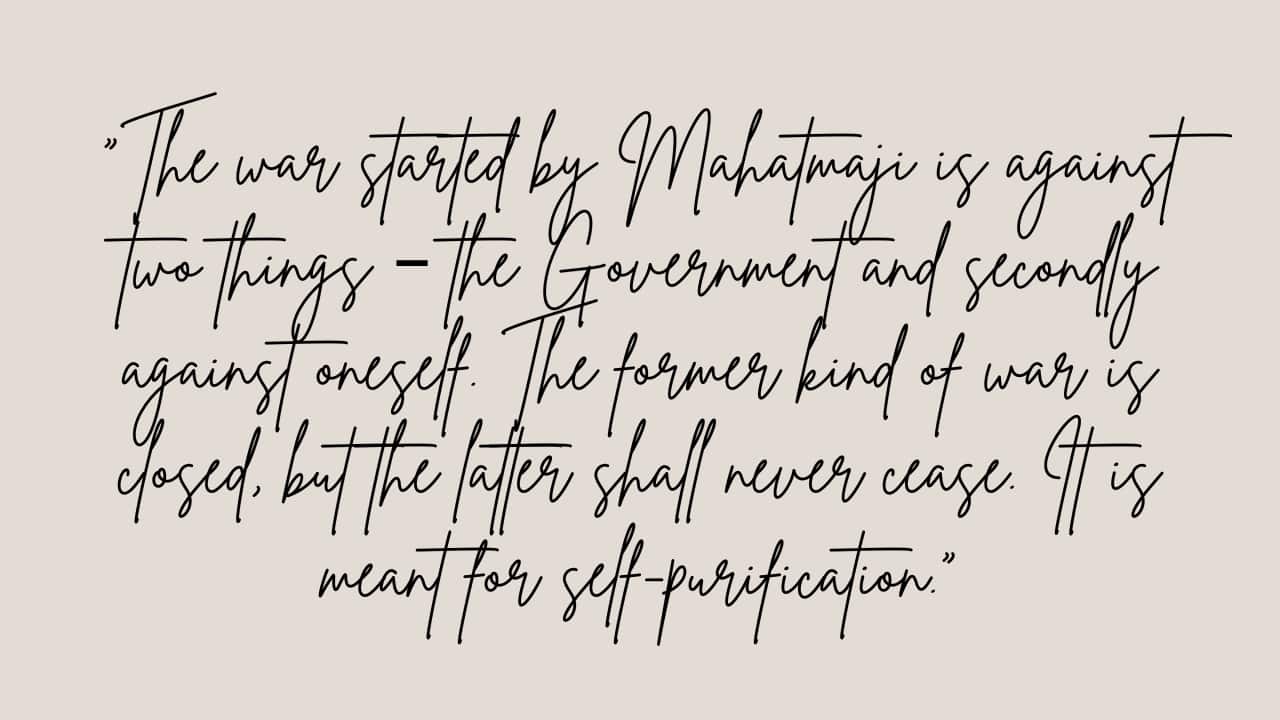 ”The war started by Mahatmaji is against
two things – the Government and secondly
against oneself. The former kind of war is
closed, but the latter shall never cease. It is
meant for self-purification.”